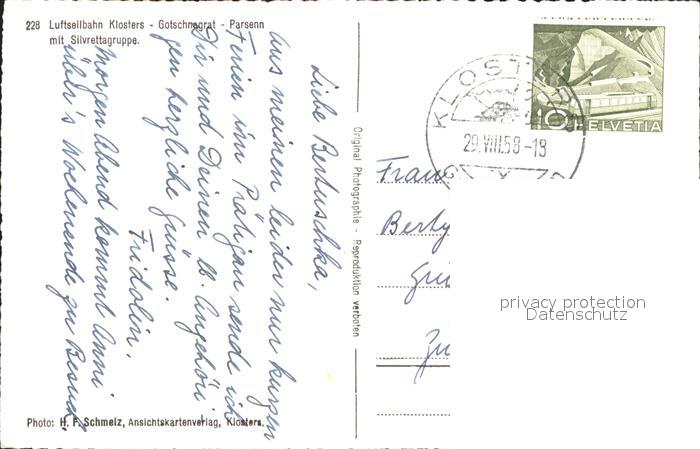 228 Luftseilbahn Klosters - Gotschnagrat - Parsenn
mit Silvrettagruppe.
Liebe Bertuschka,
Aus meinen leider nur kurzen
Ferien im Prätigau sende ich
Dir und Deinen lb. Angehöri
gen herzliche Grüsse.
Fridolin.
Morgen Abend kommt Anni
über's Wochenende zu Besuch.
Photo: H. F. Schmelz, Ansichtskartenverlag, Klosters.
Original Photographie - Reproduktion verboten
KLOSTERS
29.VIII.58-18
10 HELVETIA
Frau
Berty
privacy protection
Datenschutz